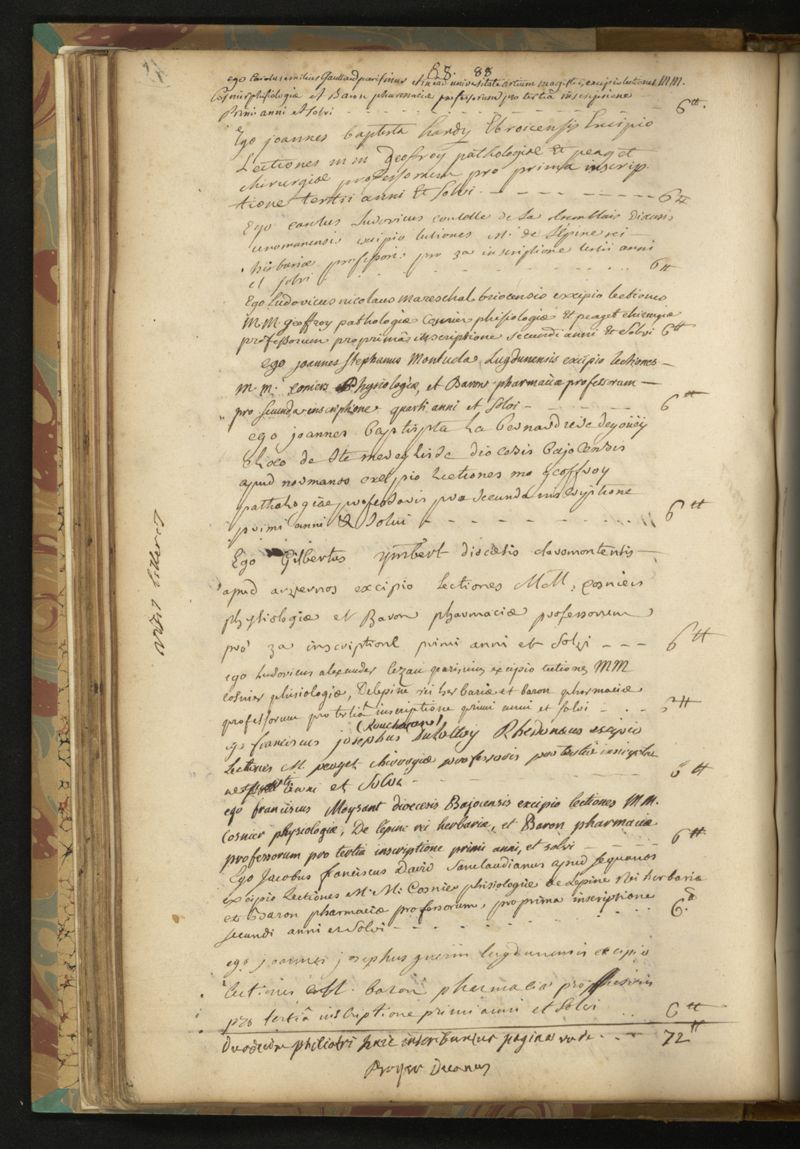 88. 88
ego Carolus emilius Gaulard parisinus et in eâd. universitate artium magister, excipio lectiones MM.
Cosnier phisiologiæ et Baron pharmaciæ professorum pro tertia inscriptione
primi anni et solvi - - - 6 tt.
Ego joannes baptista hardy Ebroicensis Excipio
Lectiones m m Geofroy pathologiæ et peaget
chirurgiæ professorum pro prima inscrip
tione tertii anni et solvi - - - 6 tt
Ego Ludovicus de la
cenomanensis excipio lectiones M. de lépine rei
herbariæ professoris pro 3a inscriptione tertii anni
et solvi - - - 6 tt
Ego Ludovicus nicolaus Mareschal briocensis excipio lectiones
M.M. geoffroy pathologiæ Cosnier phisiologiæ et peaget chirurgiæ
professorum pro primâ inscriptione secundi anni et solvi 6 tt
ego joannes Stephanus Montucla Lugdunensis excipio lectiones
m. m. Cosnier physiologiæ, et Baron pharmaciæ professorum
pro secunda inscriptione quarti anni et solvi - - - 6 tt
ego joannes baptista La
de Ste mereglise diocesis bajocensis
apud normanos excipio lectiones mo geoffroy
pathologiæ professoris pro secunda inscriptione
primi anni et solvi - - - 6 tt
Ego Gilbertus ymbert diocesis claromontensis
apud arvernos excipio lectiones MM. cosniers
physiologiæ et Baron pharmaciæ professorum
pro 3a inscriptione primi anni et solvi - - - 6 tt
ego Ludovicus alexander parisinus excipio lectiones MM
cosnier phisiologiæ, Delepine rei herbariæ et baron pharmaciæ
professorum pro tertiâ inscriptione primi anni et solvi - - tt
ego franciscus josephus Rhedonæus excipio
Lectiones M. peaget chirurgiæ professoris pro tertiâ inscriptione
anni et Solvi - - - 6 tt
ego franciscus Moysant diœcesis Bajocensis excipio lectiones MM.
Cosnier physiologiæ, De lépine rei herbariæ, et Baron pharmaciæ
professorum pro tertia inscriptione primi anni, et solvi - - 6 tt
Ego Jacobus franciscus David Sanclaudianus apud sequanos
Excipio Lectiones M. M. Cosnier phisiologiæ de Lepine Rei herbariæ
et Baron pharmaciæ professorum, pro prima inscriptione
secundi anni et solvi - - - 6 tt
ego joannes josephus guerin lugdunensis excipio
lectiones M. baron pharmaciæ professoris
pro tertiâ inscriptione primi anni et solvi - - 6 tt
Duodecim philiatri huic inscribuntur paginæ - - 72 tt
Boyer Decanus